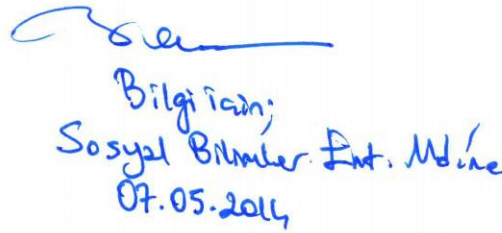 Bilgi için;
Sosyal Bilimler Enst. Md.ne
07.05.2014